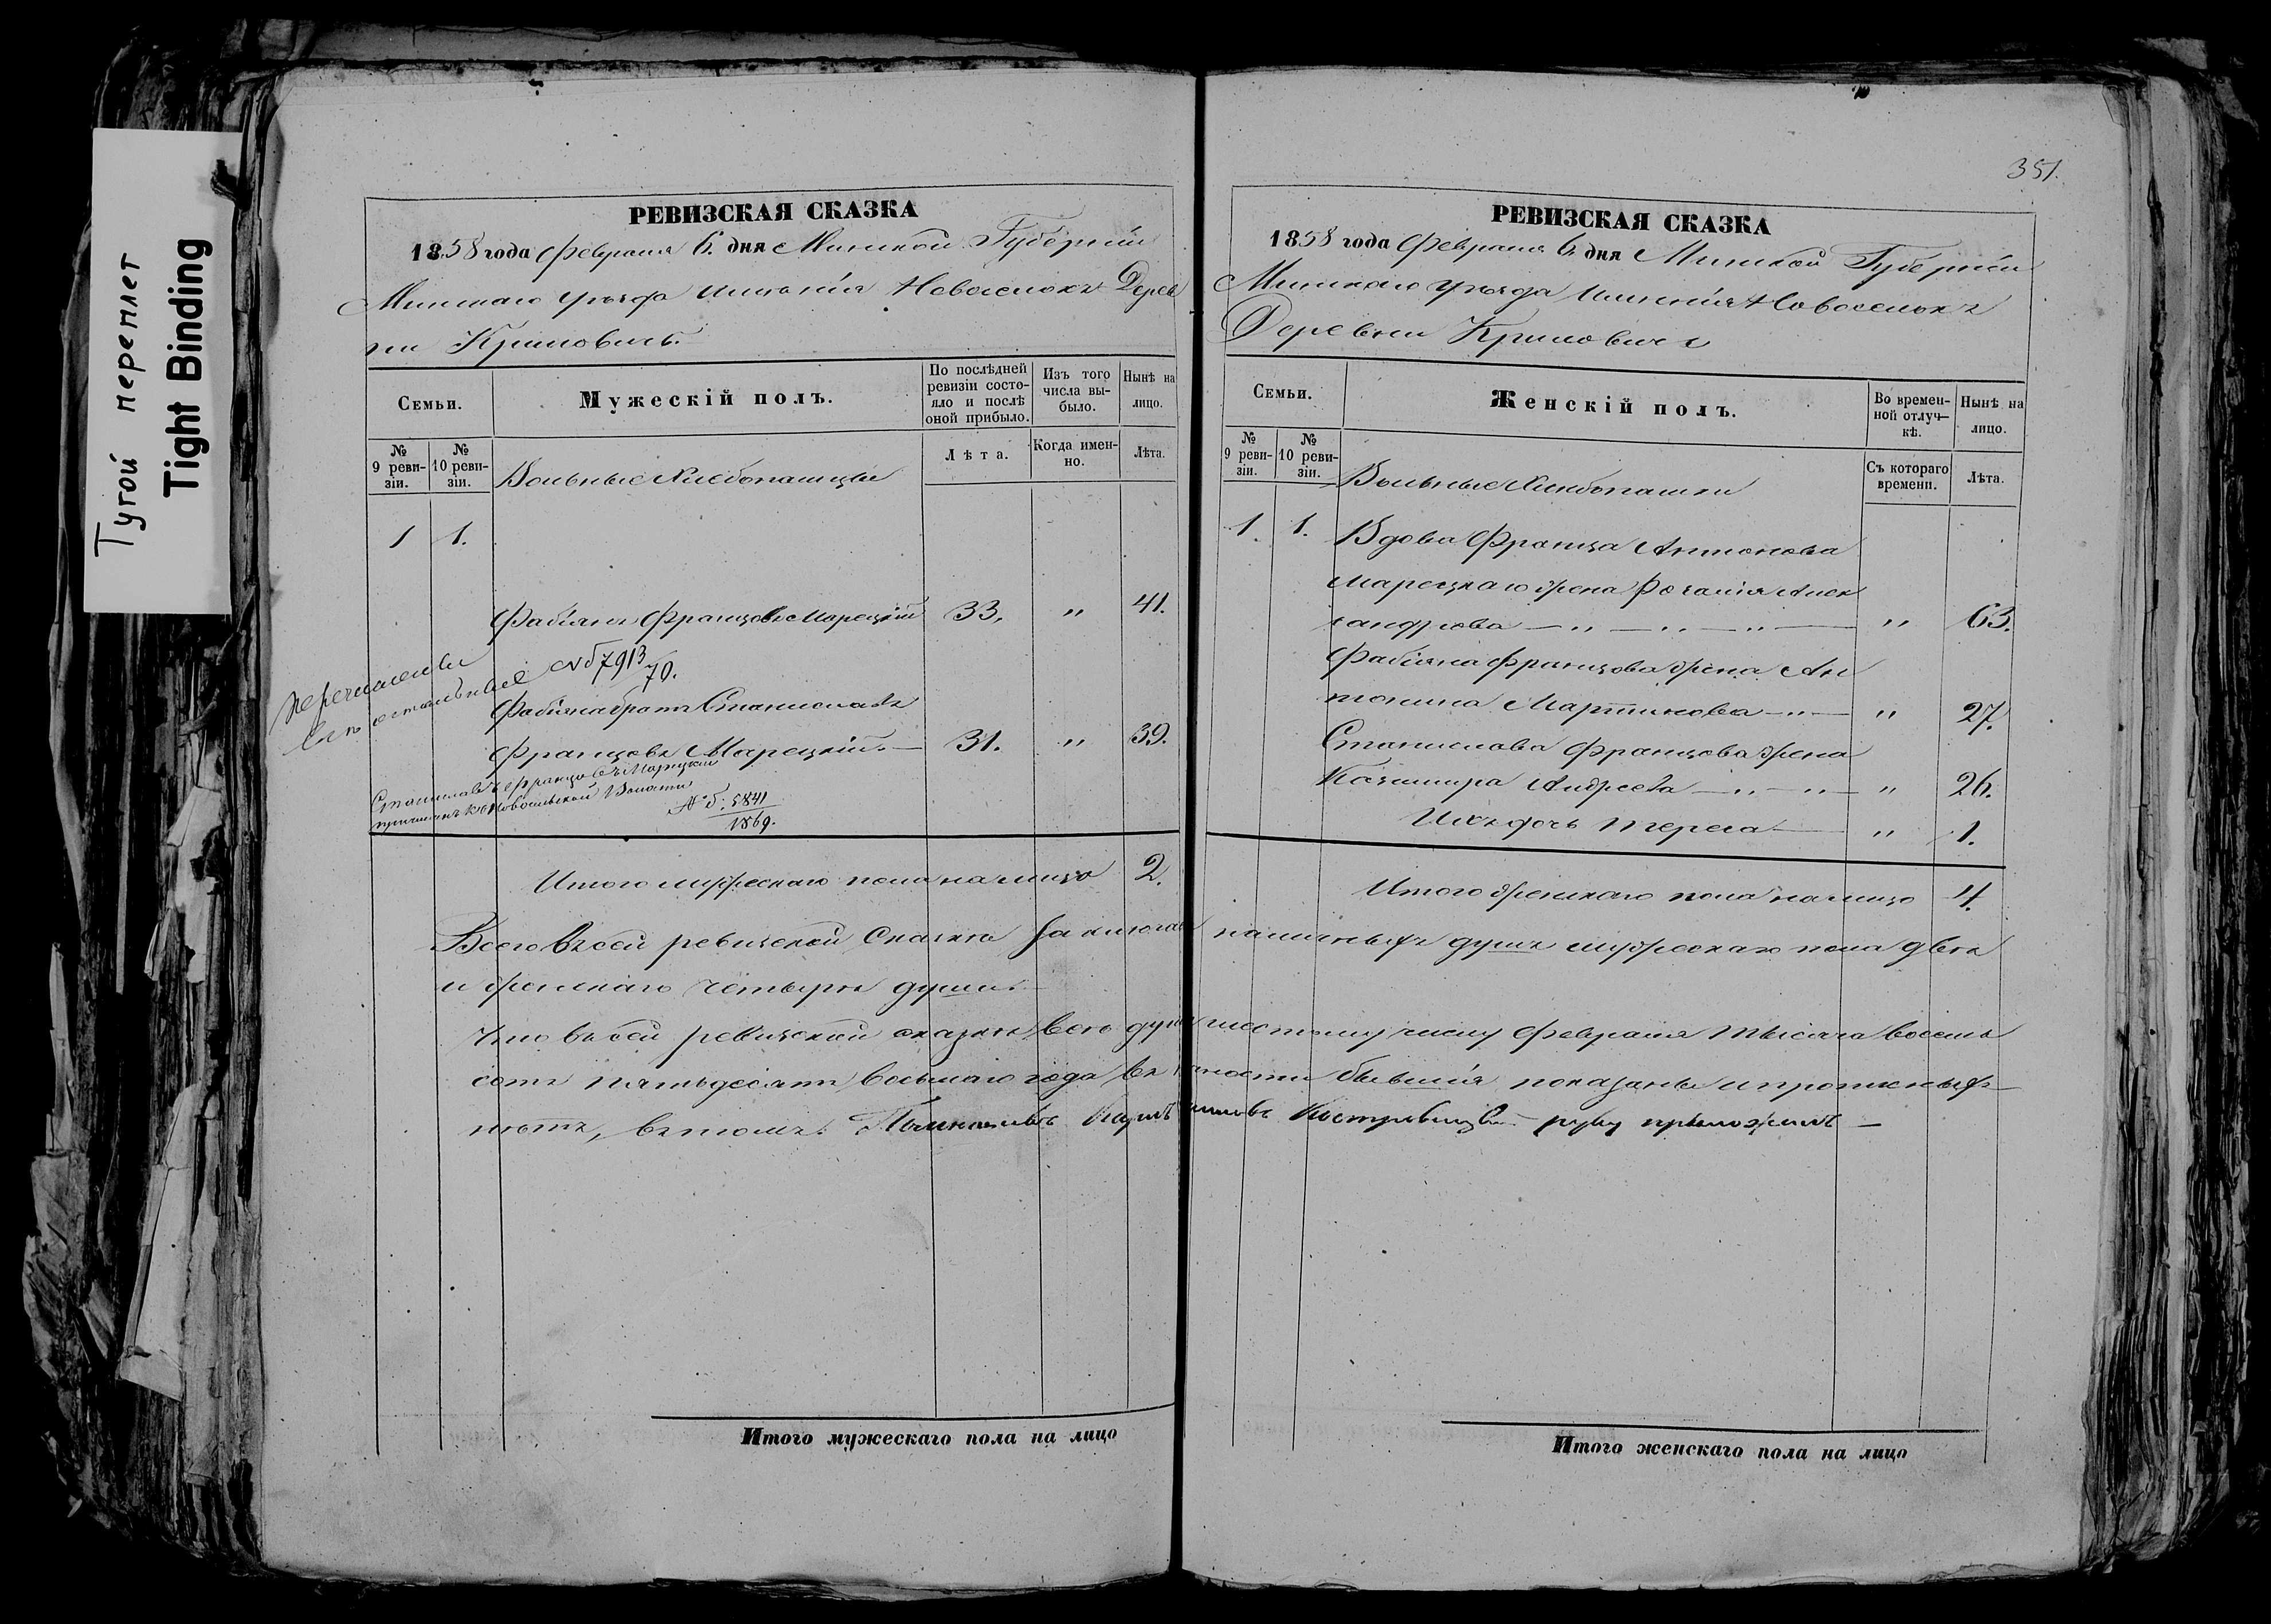 Тугой переплет
Tight Binding
РЕВИЗСКАЯ СКАЗКА
1858 года Февраля 6. дня Минской Губерніи
Минскаго уѣзда имѣнія Новоселокъ Дерев
ни
Семьи.
Мужескій полъ.
По послѣдней ревизіи состояло и послѣ оной прибыло.
Изъ того числа выбыло.
Нынѣ на лицо.
№ 9 ревизіи.
№ 10 ревизіи.
Вольные Хлебопашцы
Лѣта.
Когда именно.
Лѣта.
1 1.
Фабіянъ Францовъ Марецкій 33. " 41.
№ 7913/70.
Фабіяна братъ Станиславъ
Францовъ Марецкій. — 31. " 39.
Станиславъ Францовъ Марецкій
причисленъ къ Новосельской Волости
5841
1869.
Итого мужескаго пола на лицо 2.
РЕВИЗСКАЯ СКАЗКА
351.
1858 года Февраля 6. дня Минской Губерніи
Минскаго уѣзда имѣнія Новоселокъ
Деревни
Семьи.
Женскій полъ.
Во временной отлучкѣ.
Нынѣ на лицо.
№ 9 ревизіи.
№ 10 ревизіи.
Вольные Хлѣбопашки
Съ котораго времени.
Лѣта.
1. 1. Вдова Франца Антонова
Марецкаго жена Розалія Алек
сандрова — " — " — " — " 63.
Фабіяна Францова жена Ан
тонина Мартинова — " — " 27.
Станислава Францова жена
Казимира Андреева — " — " — " 26.
Ихъ дочь Тереса — " 1.
Итого женскаго пола на лицо 4.
Всего въ сей ревизской сказкѣ наличныхъ душъ мужескаго пола двѣ
и женскаго четыре души.
Что въ сей ревизской сказкѣ всѣ души шестому числу Февраля тысяча восемь
сотъ пятьдесятъ восьмаго года въ бывшія показаны и прописныхъ
нѣтъ, въ томъ. руку приложилъ —
Итого мужескаго пола на лицо
Итого женскаго пола на лицо